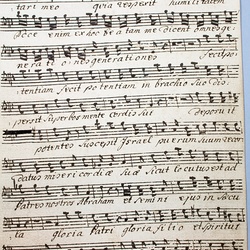 tari meo quia respexit humilitatem
Ecce enim ex hoc beatam me dicent omnes ge-
nerationes generationes fecit po
tentiam fecit potentiam in brachio suo dis
persit superbos mente cordis sui Deposuit
potentes suscepit Israel puerum suum recor
datus misericordiae suae sicut locutus est ad
Patres nostros Abraham et semini ejus in secu
la gloria Patri gloria filio et spiritui